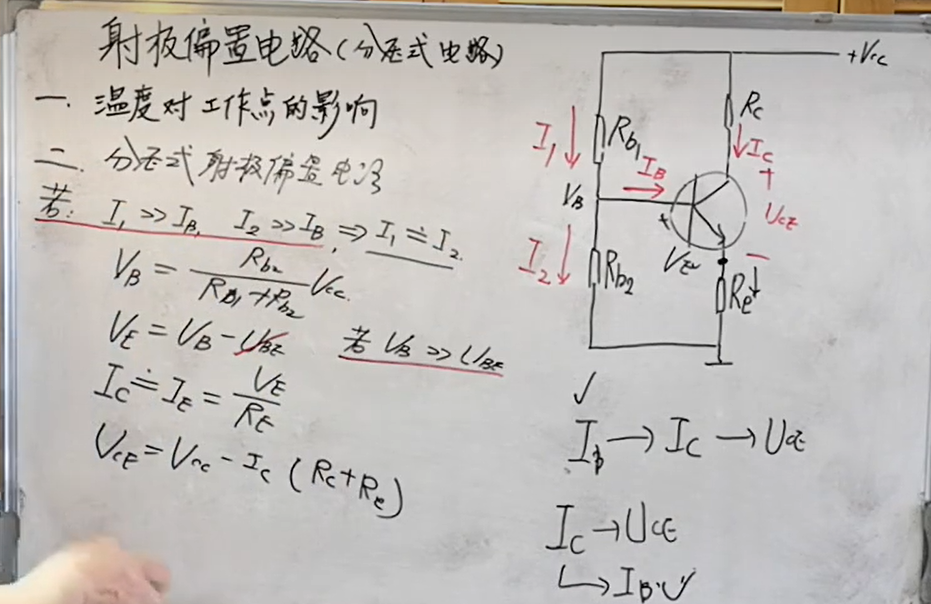 射极偏置电路(分压式电路)
一. 温度对工作点的影响
二. 分压式射极偏置电路
若: I₁ >> I_B, I₂ >> I_B, ⇒ I₁ ≐ I₂
V_B = R_b₂ / (R_B₁ + R_b₂) V_cc
V_E = V_B - U_BE 若 V_B >> U_BE
I_C ≐ I_E = V_E / R_E
V_CE = V_cc - I_c (R_c + R_e)
+V_cc
R_c
I₁ ↓ R_b₁
I_B →
↓ I_C
V_B
+
U_CE
+
V_E
-
I₂ ↓ R_b₂
R_e ↓
✓
I_B → I_C → U_CE
I_C → U_CE
↳ I_B ✓